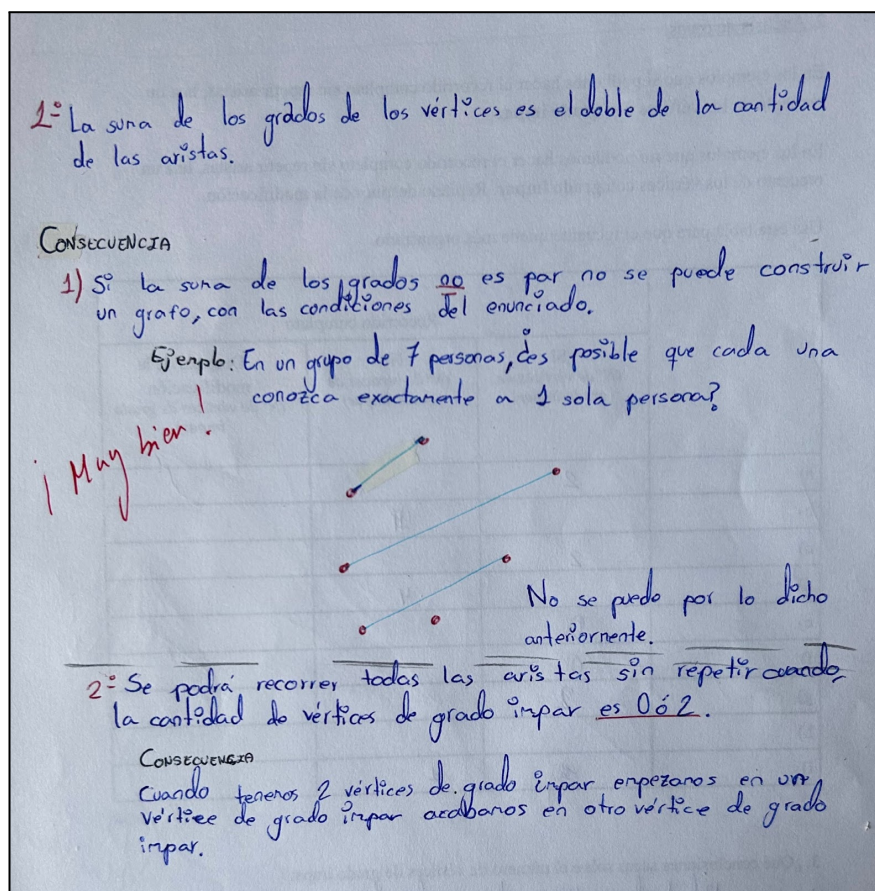 1º La suma de los grados de los vértices es el doble de la cantidad
de las aristas.
CONSECUENCIA
1) Si la suma de los grados no es par no se puede construir
un grafo, con las condiciones del enunciado.
Ejemplo: En un grupo de 7 personas, ¿es posible que cada una
conozca exactamente a 1 sola persona?
¡Muy bien!
No se puedo por lo dicho
anteriormente.
2º Se podrá recorrer todas las aristas sin repetir cuando,
la cantidad de vértices de grado impar es 0 ó 2.
CONSECUENCIA
Cuando tenemos 2 vértices de grado impar empezamos en un
vértice de grado impar acabamos en otro vértice de grado
impar.